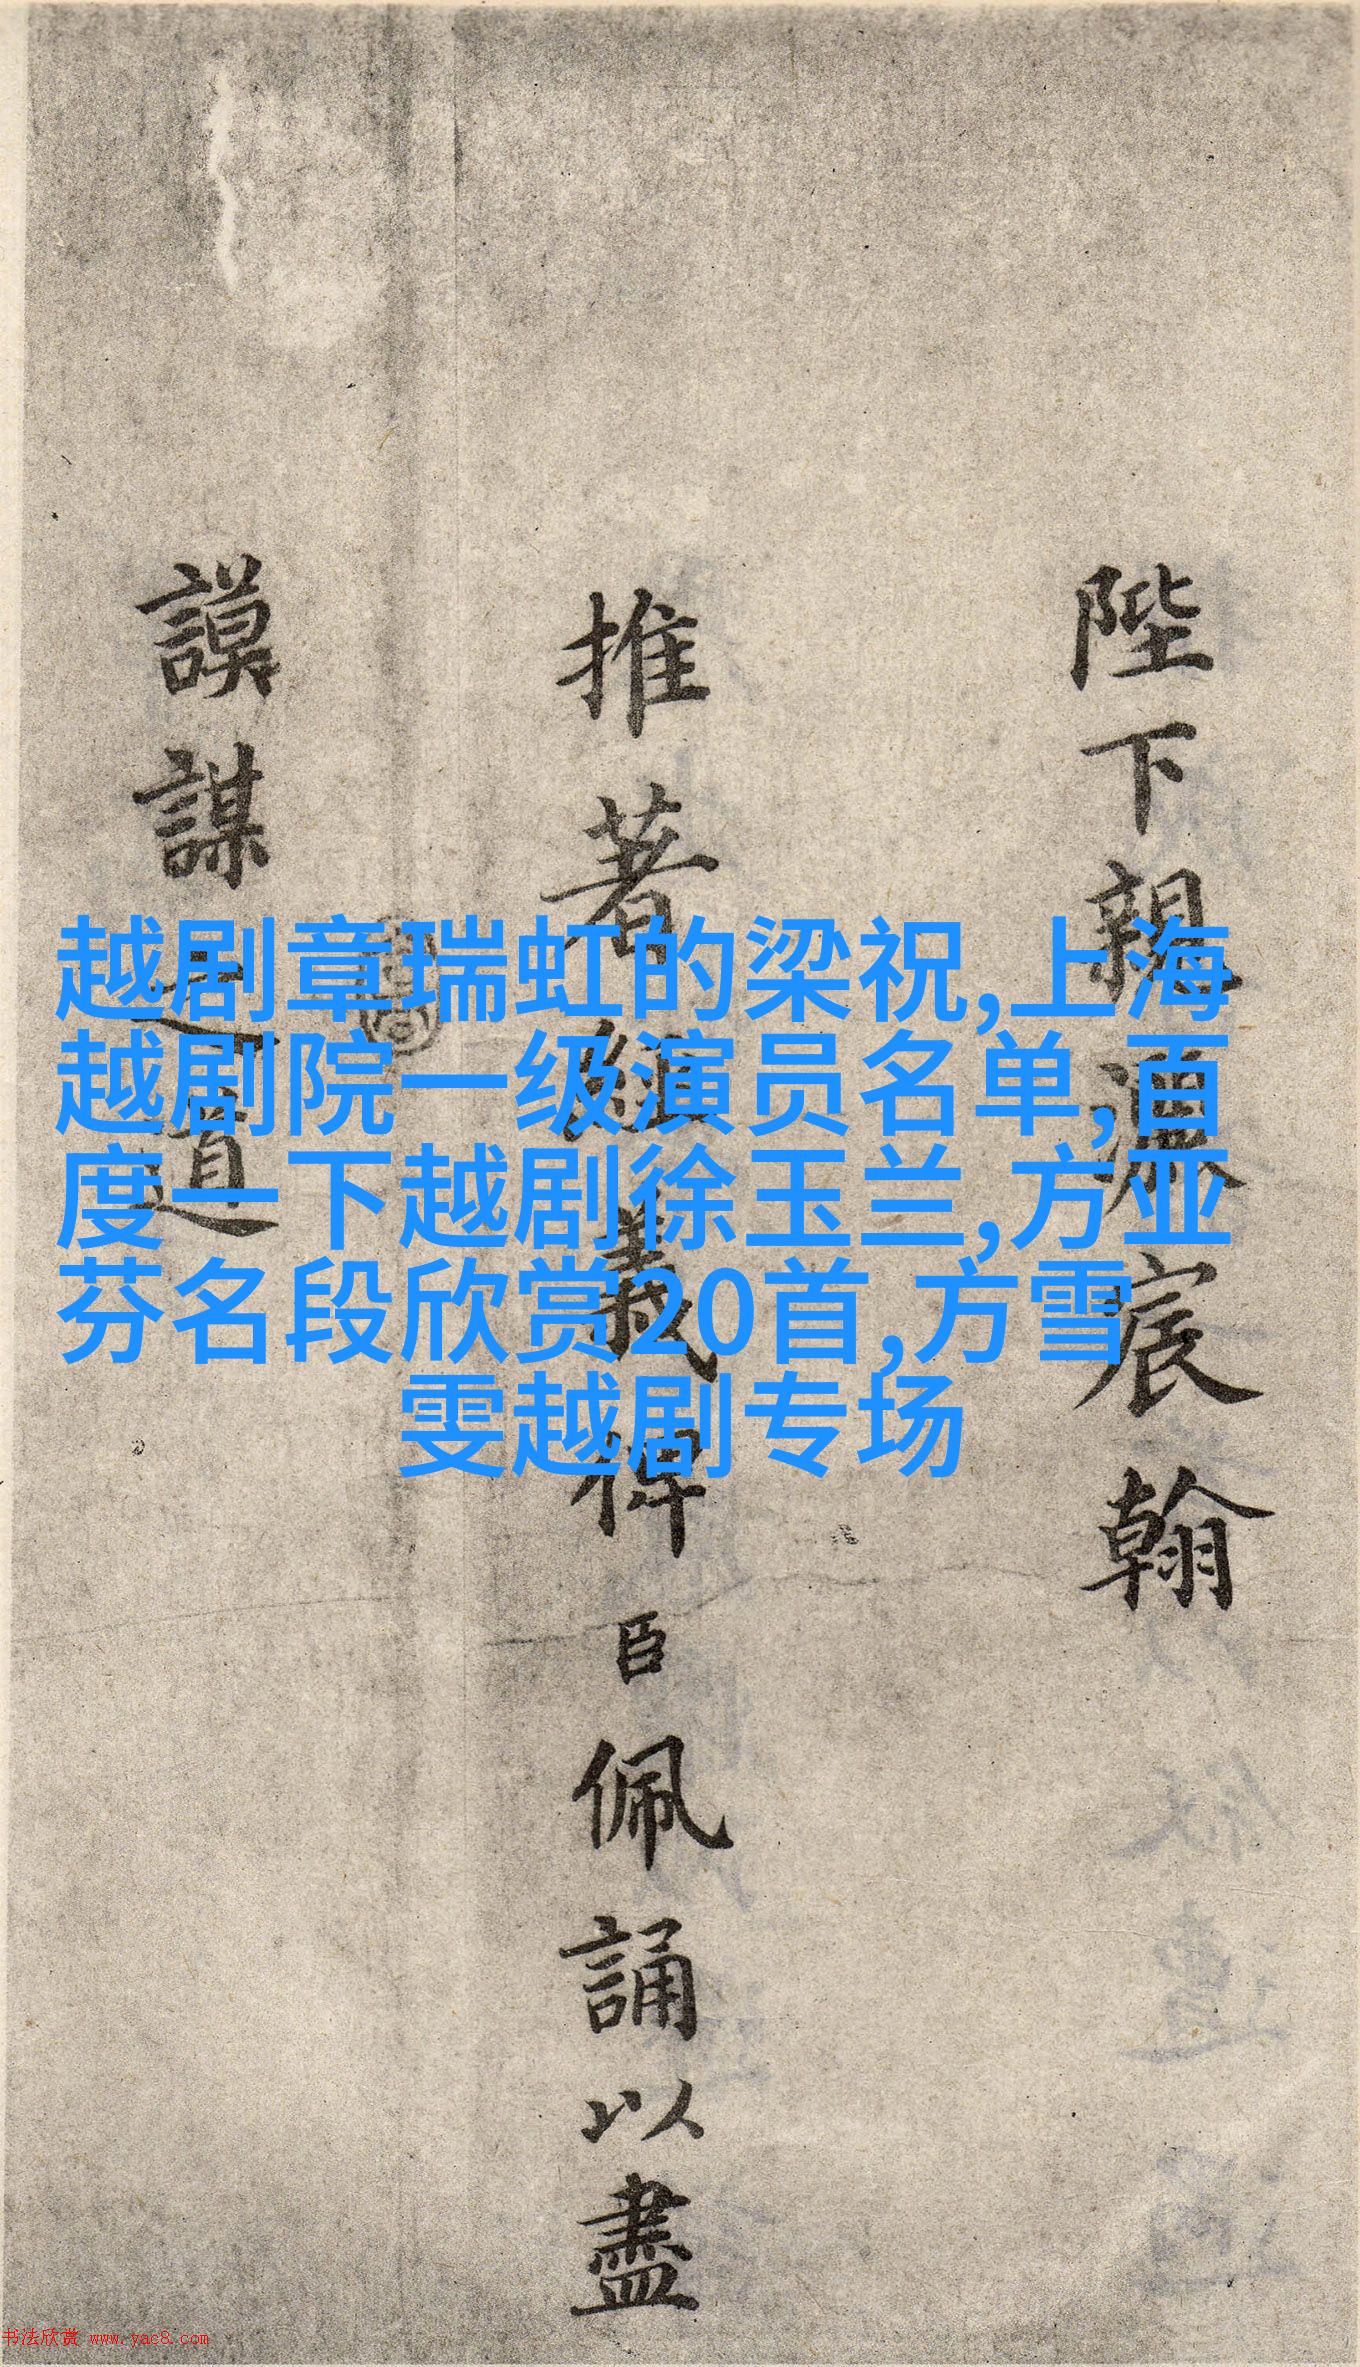 陛下親灑宸翰
推著經義裨臣佩誦以盡
謨謀之道
越剧章瑞虹的梁祝,上海
越剧院一级演员名单,百
度一下越剧徐玉兰,方亚
芬名段欣赏20首,方雪
雯越剧专场
书法欣赏 www.yac8.com